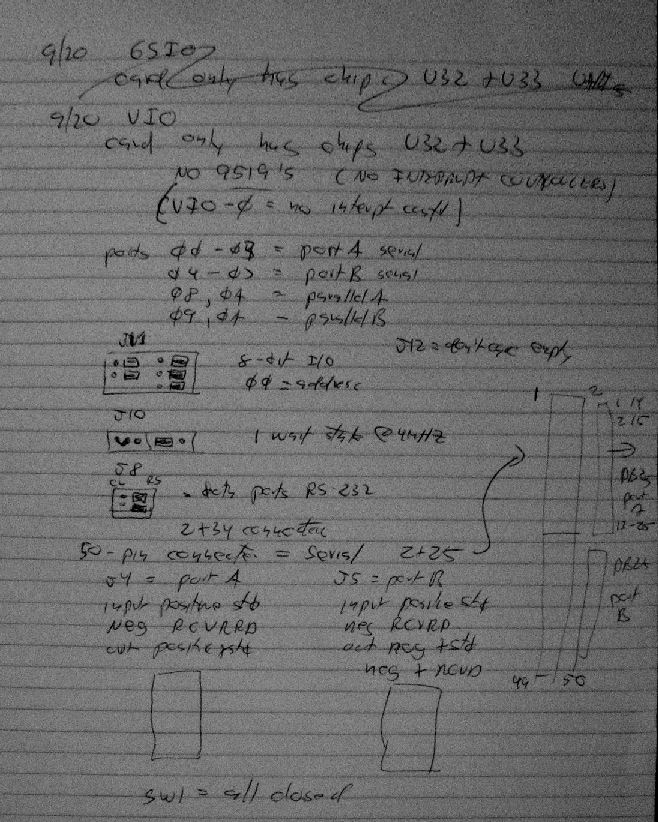 9/20 GSIO
card only has chips U32 + U33
9/20 VIO
card only has chips U32 + U33
NO 9519's (NO INTERRUPT CONTROLLERS)
(VIO-Ø = no interupt contl)
ports ØØ - Ø3 = port A serial
Ø4 - Ø7 = port B serial
Ø8, ØA = parallel A
Ø9, = parallel B
J12 = don't care empty
8-bit I/O
ØØ = address
J10
1 wait state @ 4MHz
J8
RS
= sets ports RS-232
2 + 34 connector
50-pin connector = serial 2+25
J4 = port A J5 = port B
input positive stb input positive stb
neg RCVRRD neg RCVRD
out positive stb out neg + stb
neg + RCVD
1 2
1 14
2 15
DB25
port
A
13-25
DB25
port
B
49 50
SW1 = all closed